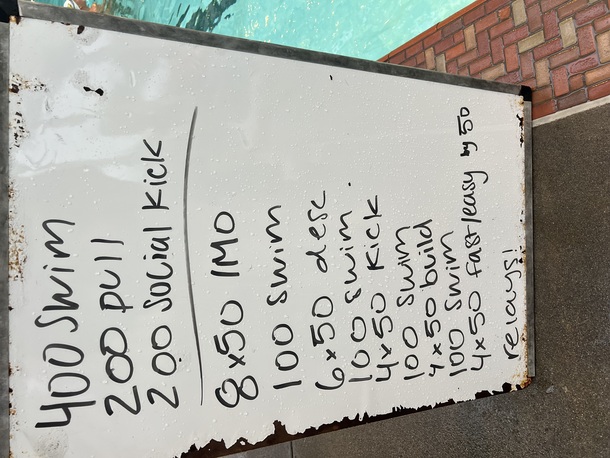 400 Swim
200 pull
200 Social Kick
8x50 IMO
100 Swim
6x50 desc
100 Swim.
4x50 Kick
100 Swim
4x50 build
100 Swim
4x50 fast/easy by 50
relays!